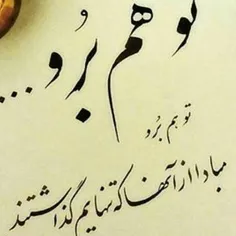 تو هم بُرو ...
تو هم بُرو
مبادا از آنها که تنهایم گذاشتند